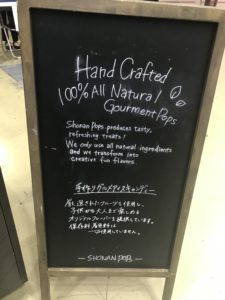 Hand Crafted
100% All Natural!
Gourment Pops
Shonan Pops produces tasty,
refreshing treats!
We only use all natural ingredients
and we transform into
creative fun flavors.
手作りグルメアイスキャンディー
厳選されたフルーツを使用し、
子供から大人まで楽しめる
オリジナルフレーバーを提供しています。
保存料 着色料は
一切使用していません。
— SHONAN POPS —